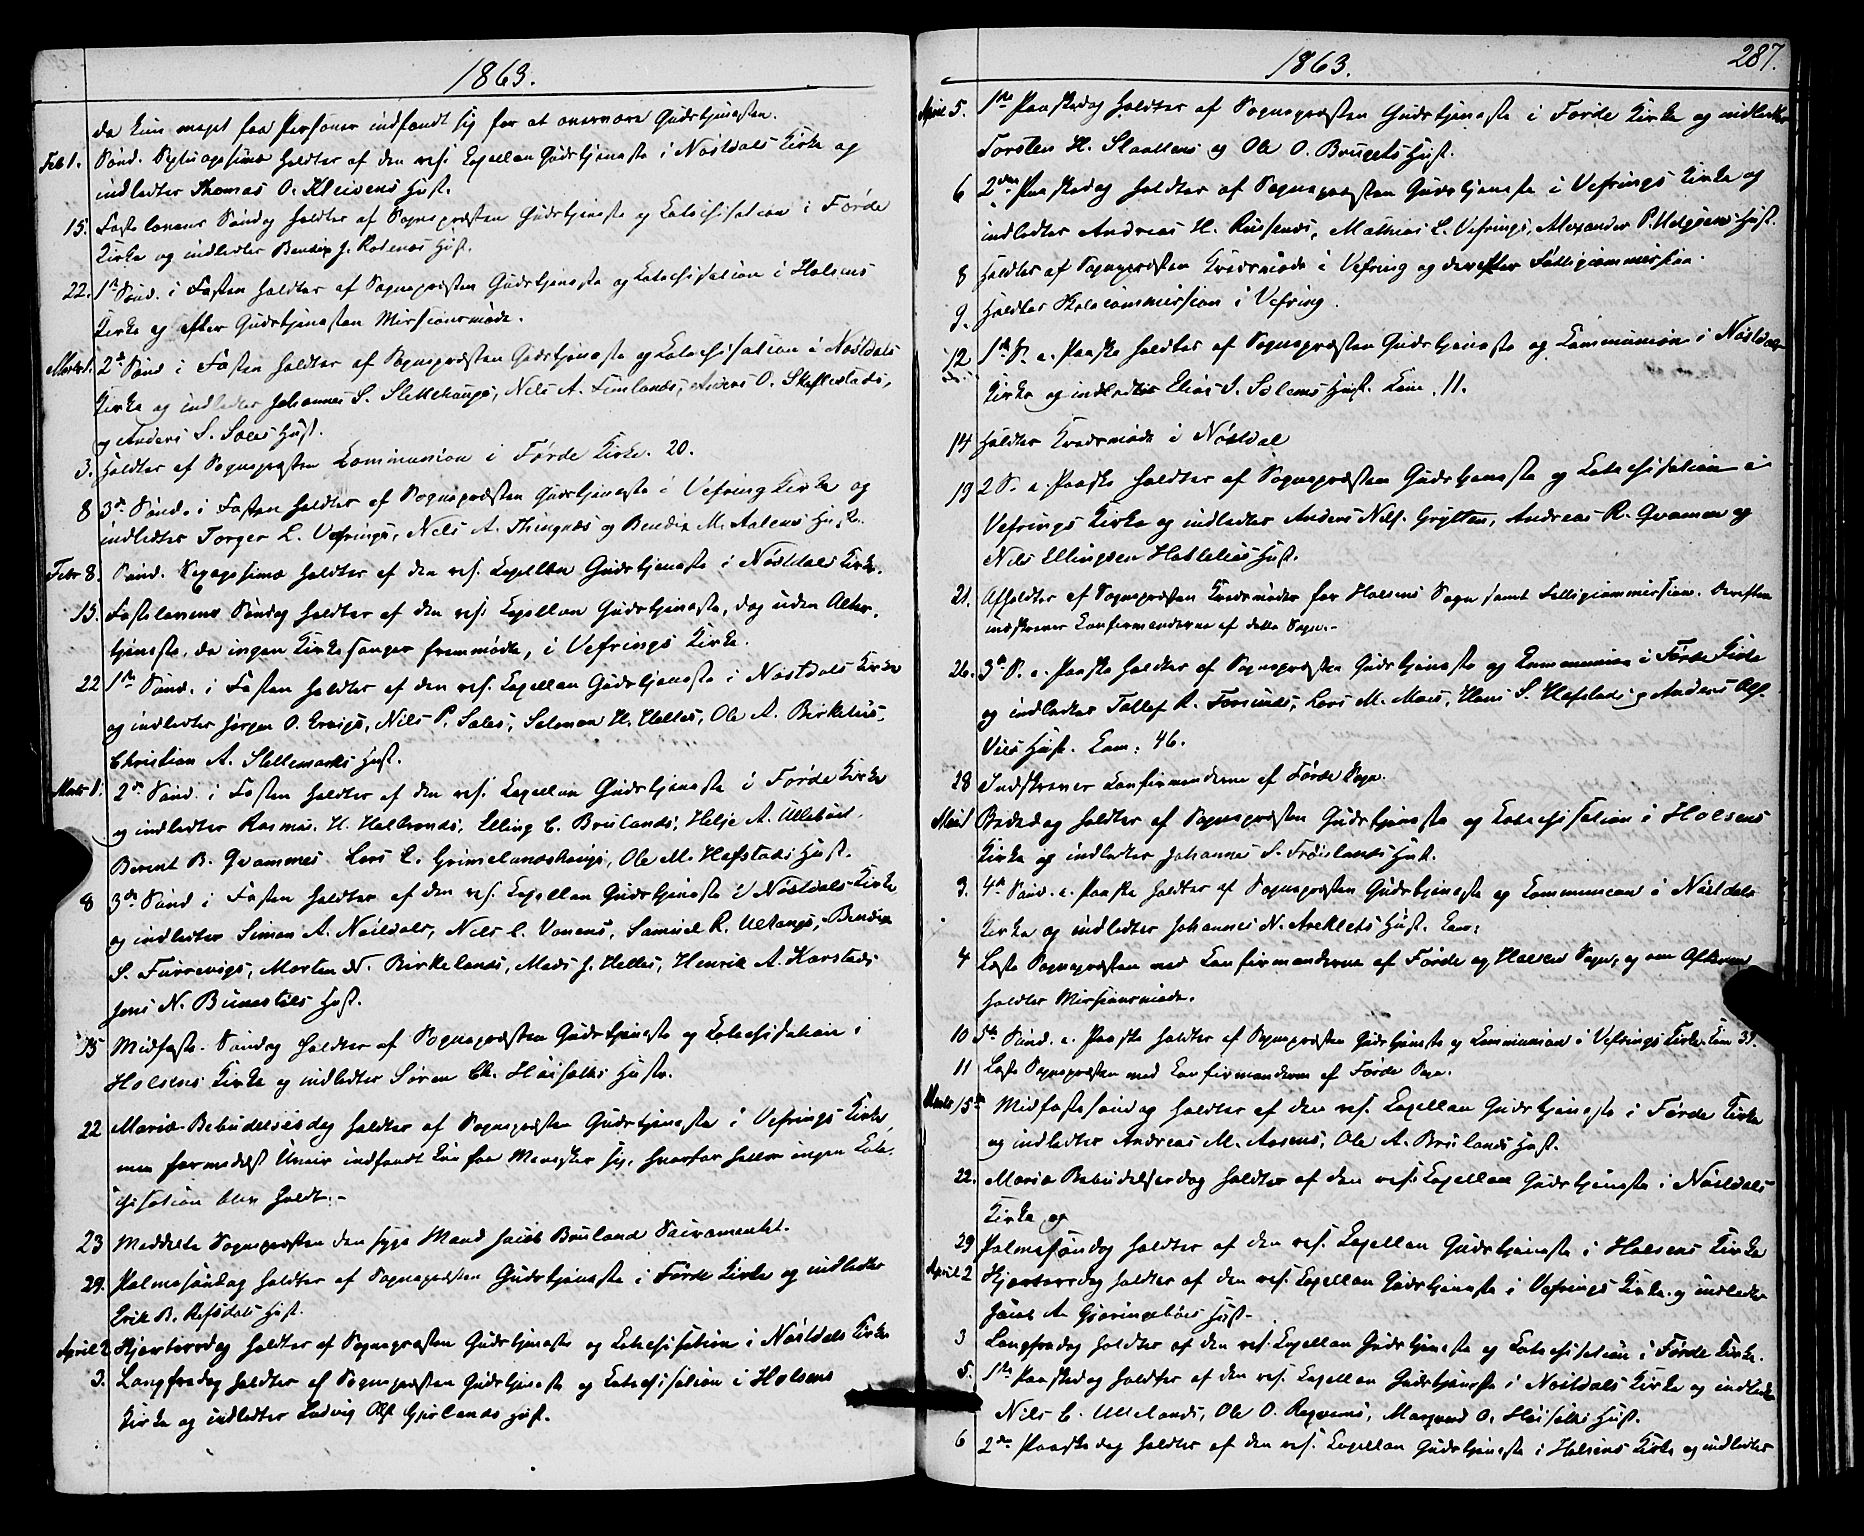 1863.
da kun meget faa Personer indfandt sig for at overvære Gudstjenesten.
Feb 1. Sønd. Septuagesima holdtes af den res. Capellan Gudstjeneste i Nøstdals Kirke og
indledtes Thomas O. Kleivens Hust.
15. Fastelavens Søndag holdtes af Sognepræsten Gudstjeneste og Catechisation i Førde
Kirke og indledtes Bendix J. Rotenæs Hust.
22. 1ste Sønd. i Fasten holdtes af Sognepræsten Gudstjeneste og Catechisation i Holsens
Kirke og efter Gudstjenesten Missionsmøde.
Marts 1. 2den Sønd i Fasten holdtes af Sognepræsten Gudstjeneste og Catechisation i Nøstdals
Kirke og indledtes Johannes S. Slettehaugs, Nils A. Timlands, Anders O. Skeflestads,
og Anders S. Soles Hust.
3. Holdtes af Sognepræsten Communion i Førde Kirke. 20.
8 3die Sønd. i Fasten holdtes af Sognepræsten Gudstjeneste i Vefring Kirke og
indledtes Torger L. Vefrings, Nils A. Thingnæs og Bendix M. Aalens Hust.
Febr 8. Sønd. Sexagesima holdtes af den res. Capellan Gudstjeneste i Nøstdals Kirke.
15. Fastelavens Søndag holdtes af den res. Capellan Gudstjeneste, dog uden Alter-
tjeneste, da ingen Kirkesanger fremmødte, i Vefrings Kirke.
22 1ste Sønd. i Fasten holdtes af den res. Capellan Gudstjeneste i Nøstdals Kirke
og indledtes Jørgen O. Ervigs, Nils P. Soles, Salomon H. Helles, Ole A. Birkelies,
Christian A. Stellemarks Hust.
Marts 1. 2den Sønd. i Fasten holdtes af den res. Capellan Gudstjeneste i Førde Kirke
og indledtes Rasmus H. Halbrends, Elling C. Brulands, Helje A. Ullebust,
Berent B. Qvammes Lars L. Grimelandshaugs, Ole M. Hafstads Hust.
8 3die Sønd i Fasten holdtes af den res. Capellan Gudstjeneste i Nøstdals Kirke
og indledtes Simon A. Nøstdals, Nils C. Vonens, Samuel R. Ultangs, Bendix
S. Furrevigs, Morten N. Birkelands, Mads J. Helles, Henrik A. Karstads
Jens N. Hust.
15 Midfaste Søndag holdtes af Sognepræsten Gudstjeneste og Catechisation i
Holsens Kirke og indledtes Søren Chr. Høisæths Hustr.
22 Mariæ Bebudelsesdag holdtes af Sognepræsten Gudstjeneste i Vefrings Kirke,
men formedelst Uveir indfandt kun faa Mennesker sig, hvorfor heller ingen Cate-
chisation blev holdt.-
23 Meddelte Sognepræsten den syge Mand Jacob Bruland Sacramentet.
29. Palmesøndag holdtes af Sognepræsten Gudstjeneste i Førde Kirke og indledtes
Erik B. Refsdals Hust.
April 2 Skjærtorsdag holdtes af Sognepræsten Gudstjeneste og Catechisation i Nøstdals Kirke
3. Langfredag holdtes af Sognepræsten Gudstjeneste og Catechisation i Holsens
Kirke og indledtes Ludvig Gjerlands Hust.
1863.
287.
April 5. 1ste Paaskedag holdtes af Sognepræsten Gudstjeneste i Førde Kirke og indledtes
Torsten H. Slaattens og Ole O. Hust.
6 2den Paaskedag holdtes af Sognepræsten Gudstjeneste i Vefrings Kirke og
indledtes Andreas H. Russenæs, Mathias L. Vefrings, Alexander P. Helgens Hust.
8 Holdtes af Sognepræsten Kredsmøde i Vefring og derefter Fattigcommission.
9. Holdtes Skolecommission i Vefring.
12 1ste S. e. Paaske holdtes af Sognepræsten Gudstjeneste og Communion i Nøstdals
Kirke og indledtes Elias S. Solems Hust. Com. 11.
14 Holdtes Kredsmøde i Nøstdal
19 2 S. e. Paaske holdtes af Sognepræsten Gudstjeneste og Catechisation i
Vefrings Kirke og indledtes Anders Nils. Grytten, Andreas R. Qvamen og
Nils Ellingsen Hatlelies Hust.
21. Afholdtes af Sognepræsten Kredsmøder for Holsens Sogn samt Fattigcommission. Derefter
indskreves Confirmanderne af dette Sogn.-
26. 3die S. e. Paaske holdtes af Sognepræsten Gudstjeneste og Communion i Førde Kirke
og indledtes Tollef R. Farsunds, Lars M. Moes, Hans S. Hafstads og Anders Ols.
Vies Hust. Com: 46.
28 Indskreves Confirmanderne af Førde Sogn.
Mai 1 Bededag holdtes af Sognepræsten Gudstjeneste og Catechisation i Holsens
Kirke og indledtes Johannes S. Frøislands Hust.
3. 4de Sønd. e. Paaske holdtes af Sognepræsten Gudstjeneste og Communion i Nøstdals
Kirke og indledtes Johannes N. Areklets Hust. Com:
4 Læste Sognepræsten med Confirmanderne af Førde og Holsen Sogn, og om Aftenen
holdtes Missionsmøde.
10 5te Sønd. e. Paaske holdtes af Sognepræsten Gudstjeneste og Communion i Vefrings Kirke. Com 39.
11 Læste Sognepræsten med Confirmanderne af Førde Sogn.
Marts 15 Midfastesøndag holdtes af den res. Capellan Gudstjeneste i Førde Kirke
og indledtes Andreas M. Aasens, Ole A. Brulands Hust.
22. Mariæ Bebudelsesdag holdtes af den res. Capellan Gudstjeneste i Nøstdals
Kirke og
29 Palmesøndag holdtes af den res. Capellan Gudstjeneste i Holsens Kirke
April 2 Skjærtorsdag holdtes af den res. Capellan Gudstjeneste i Vefrings Kirke og indledtes
Jacob A. Gjøringebøes Hust.
3 Langfredag holdtes af den res. Capellan Gudstjeneste og Catechisation i Førde Kirke.
5. 1ste Paaskedag holdtes af den res. Capellan Gudstjeneste i Nøstdals Kirke og indledtes
Nils C. Ullelands, Ole O. Mangord O. Høisæths Hust.
6 2den Paaskedag holdtes af den res. Capellan Gudstjeneste i Holsens Kirke og indledtes